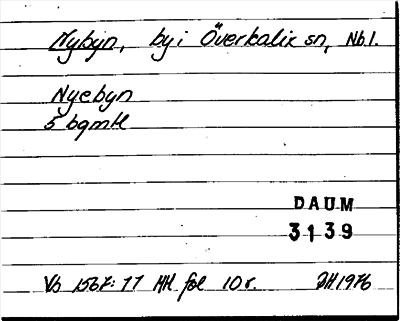 Nybyn, by i Överkalix sn, Nb.l.
Nyebyn
5 bqmtl
DAUM
3139
Vb 1567:17 HH fol 10 r. DH 1976